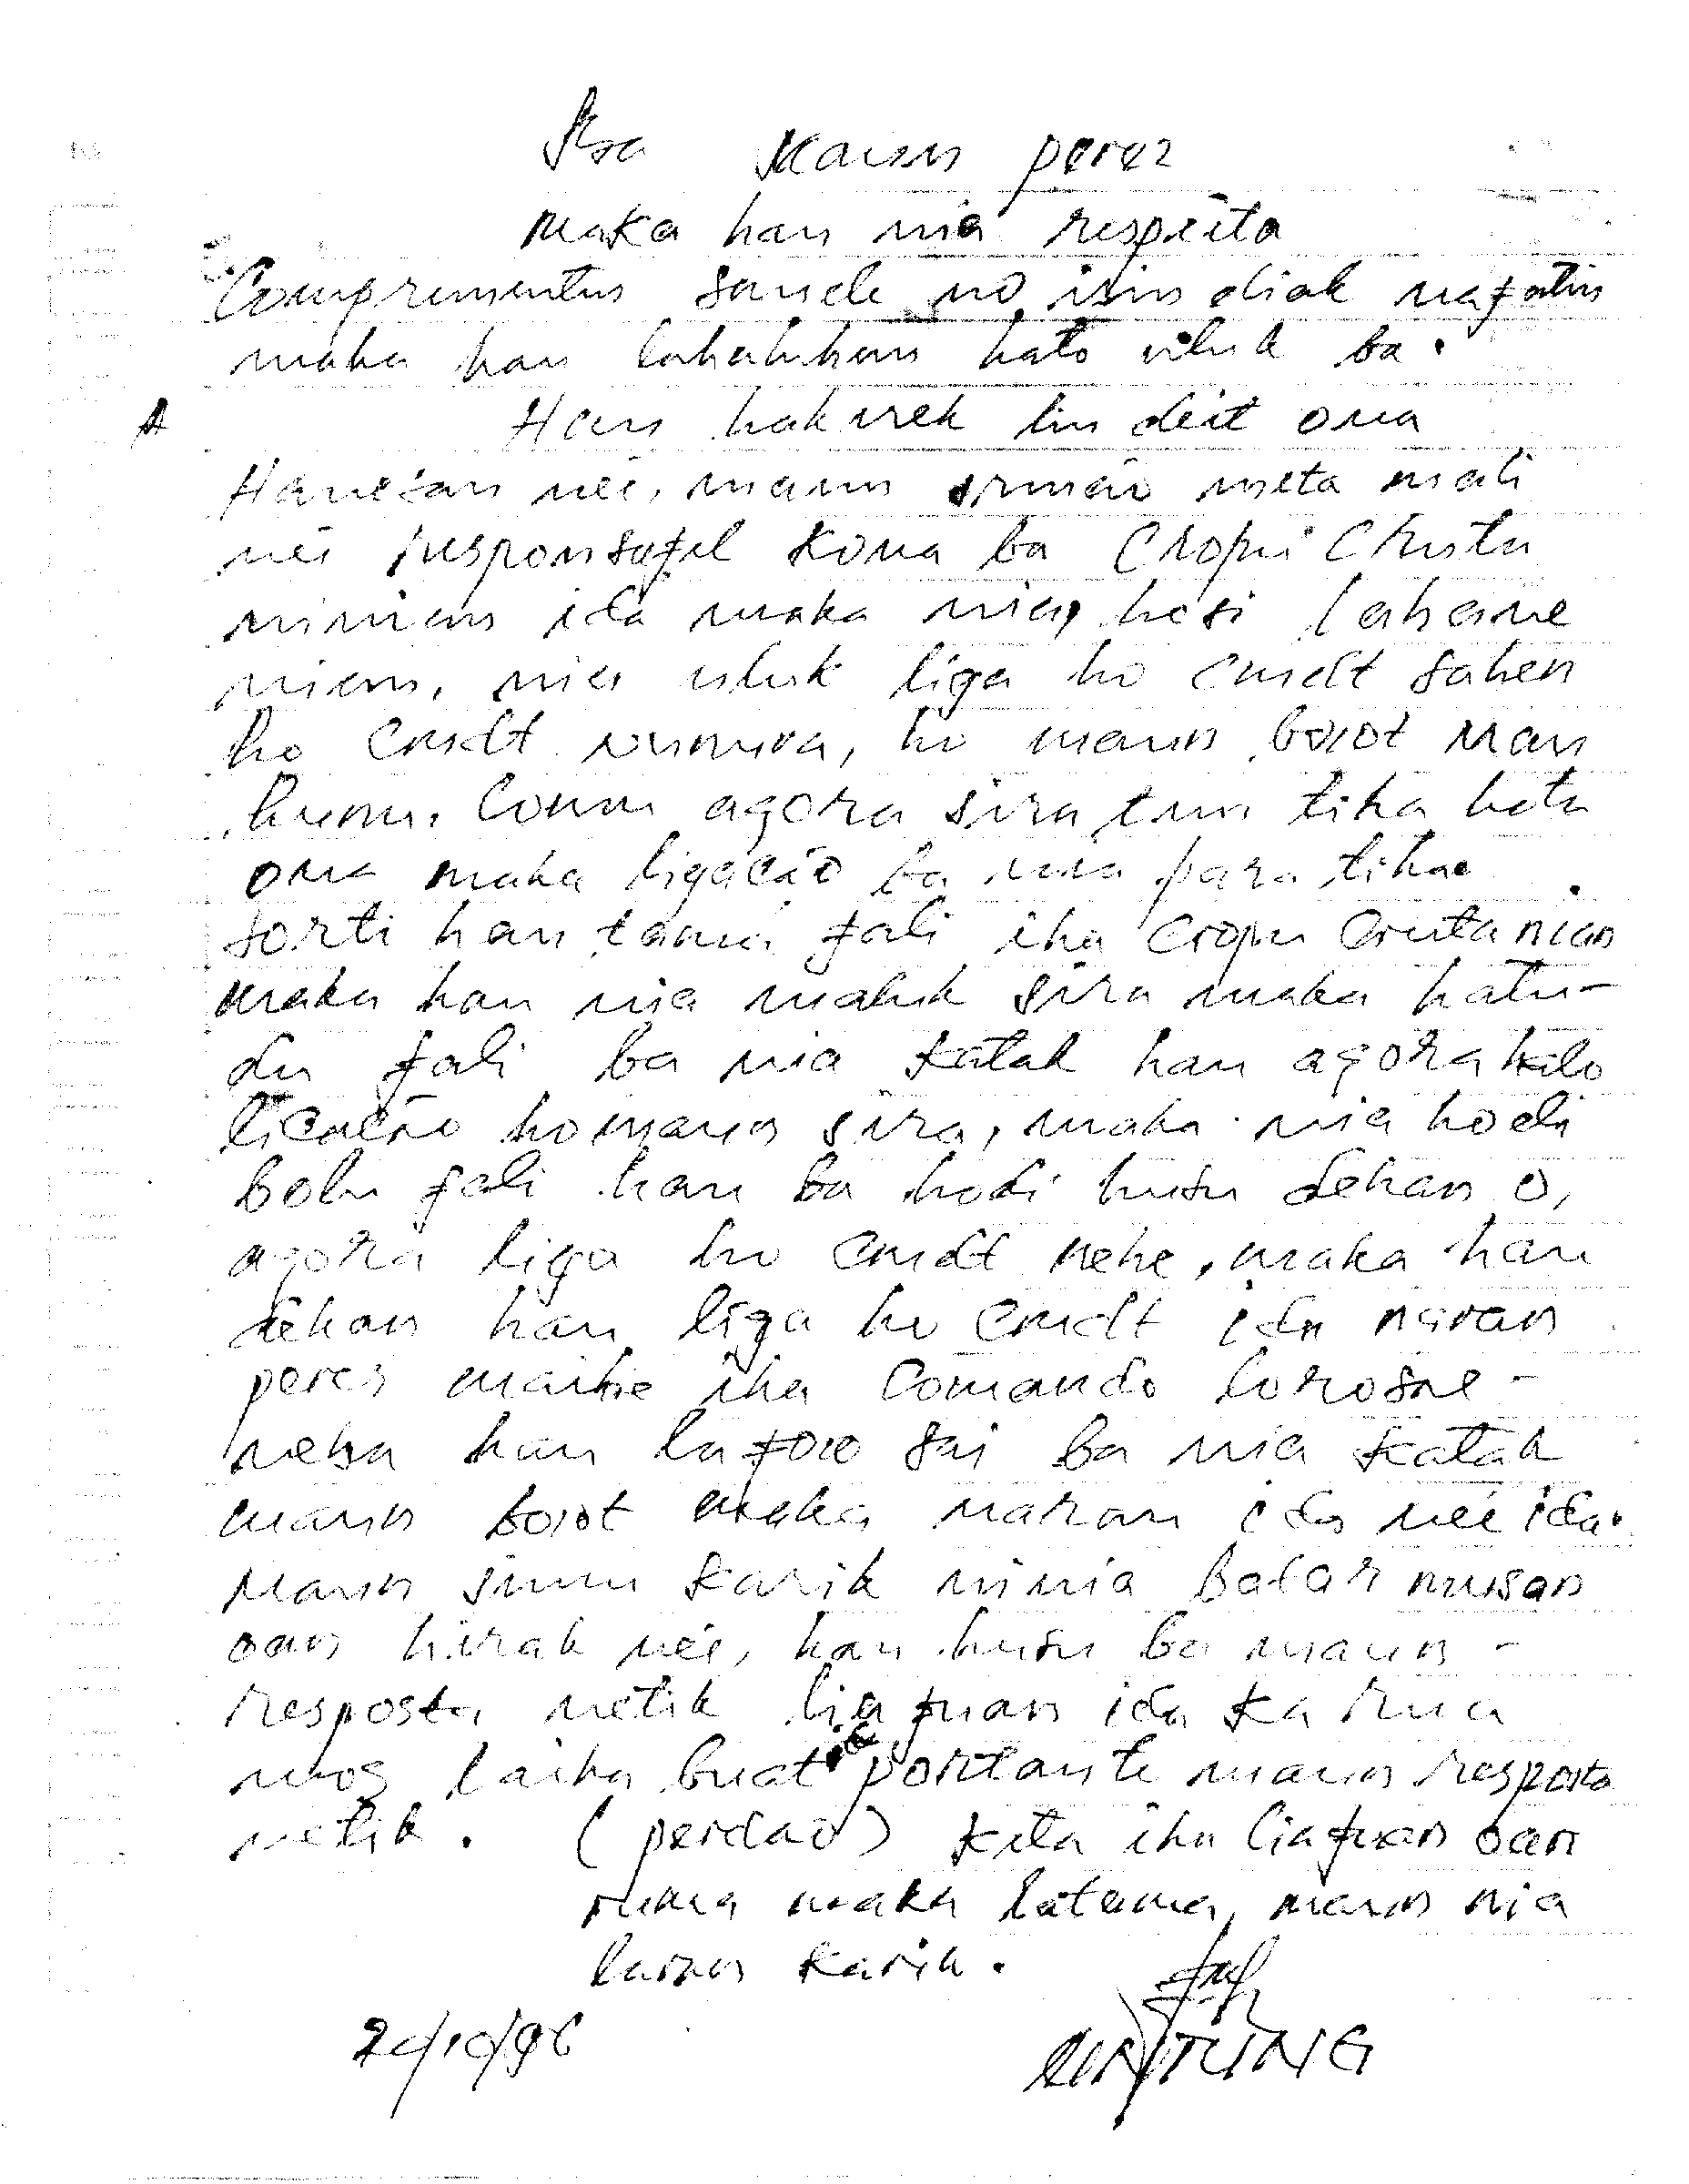 Ba Maun perez
Maka hau nia respeita
Comprimentus saude no isin diak nafatin
maka hau lahaluhan hato uluk ba.
A Hau hakerek lin deit ona
Hanesan neé, maun irmão meta mali
neé responsafel kona ba Cropu Crista
ninian ida maka niap hosi lahane
nian, nia uluk liga ho cmdt sahen
ho cmdt, ho maun boot Mau
hunu, Comu agora sira tun tiha hotu
ona maka ligacão ba nia para tiha.
sorti hau tama fali iha cropu Crista nian
maka hau nia maluk sira maka hatu-
du fali ba nia katak hau agora halo
licacão ho maun sira, maka nia hodi
bolu fali hau ba hodi husu dehan o,
agora liga ho cmdt nebe, maka hau
dehan hau liga ho cmdt ida naran
peres maibe iha Comando lorosae-
neba hau la foo sai ba nia katak
maun boot maka naran ida neé ida.
Maun simu karik ninia batar musan
oan hirak neé, hau husu ba maun -
resposta netik liafuan ida ka rua
mos laiha buat importante maun resposta
netik. (perdaõ) kita iha liafuan oan
ruma maka latama, maun nia
laran karik.